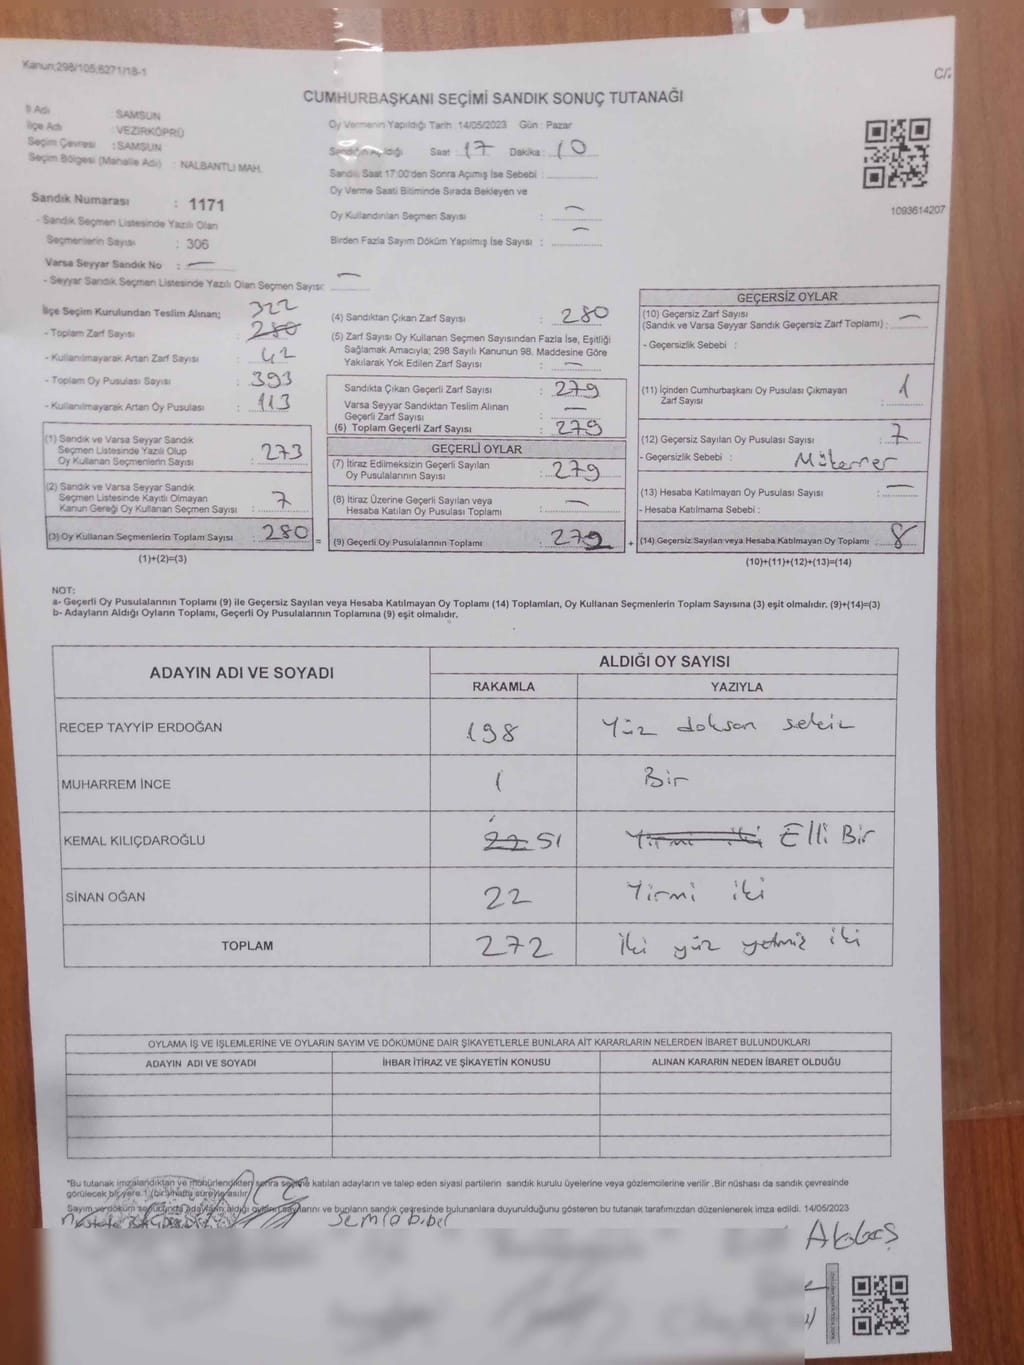 Kanun;298/105;6271/18-1
CUMHURBAŞKANI SEÇİMİ SANDIK SONUÇ TUTANAĞI
İl Adı : SAMSUN
İlçe Adı : VEZİRKÖPRÜ
Seçim Çevresi : SAMSUN
Seçim Bölgesi (Mahalle Adı) : NALBANTLI MAH.
Sandık Numarası : 1171
- Sandık Seçmen Listesinde Yazılı Olan
Seçmenlerin Sayısı : 306
Varsa Seyyar Sandık No : —
- Seyyar Sandık Seçmen Listesinde Yazılı Olan Seçmen Sayısı: —
Oy Vermenin Yapıldığı Tarih :14/05/2023 Gün : Pazar
Sandığın Açıldığı Saat : 17 Dakika : 10
Sandık Saat 17:00'den Sonra Açımış İse Sebebi :
Oy Verme Saati Bitiminde Sırada Bekleyen ve
Oy Kullandırılan Seçmen Sayısı : —
Birden Fazla Sayım Döküm Yapılmış İse Sayısı : —
1093614207
İlçe Seçim Kurulundan Teslim Alınan; 322
- Toplam Zarf Sayısı : 280
- Kullanılmayarak Artan Zarf Sayısı : 42
- Toplam Oy Pusulası Sayısı : 393
- Kullanılmayarak Artan Oy Pusulası : 113
(1) Sandık ve Varsa Seyyar Sandık
Seçmen Listesinde Yazılı Olup
Oy Kullanan Seçmenlerin Sayısı : 273
(2) Sandık ve Varsa Seyyar Sandık
Seçmen Listesinde Kayıtlı Olmayan
Kanun Gereği Oy Kullanan Seçmen Sayısı : 7
(3) Oy Kullanan Seçmenlerin Toplam Sayısı : 280 =
(1)+(2)=(3)
(4) Sandıktan Çıkan Zarf Sayısı : 280
(5) Zarf Sayısı Oy Kullanan Seçmen Sayısından Fazla İse, Eşitliği
Sağlamak Amacıyla; 298 Sayılı Kanunun 98. Maddesine Göre
Yakılarak Yok Edilen Zarf Sayısı : —
Sandıkta Çıkan Geçerli Zarf Sayısı : 279
Varsa Seyyar Sandıktan Teslim Alınan
Geçerli Zarf Sayısı : —
(6) Toplam Geçerli Zarf Sayısı : 279
GEÇERLİ OYLAR
(7) İtiraz Edilmeksizin Geçerli Sayılan
Oy Pusulalarının Sayısı : 279
(8) İtiraz Üzerine Geçerli Sayılan veya
Hesaba Katılan Oy Pusulası Toplamı : —
(9) Geçerli Oy Pusulalarının Toplamı : 272 +
GEÇERSİZ OYLAR
(10) Geçersiz Zarf Sayısı
(Sandık ve Varsa Seyyar Sandık Geçersiz Zarf Toplamı) : —
- Geçersizlik Sebebi :
(11) İçinden Cumhurbaşkanı Oy Pusulası Çıkmayan
Zarf Sayısı : 1
(12) Geçersiz Sayılan Oy Pusulası Sayısı : 7
- Geçersizlik Sebebi : Mükerrer
(13) Hesaba Katılmayan Oy Pusulası Sayısı : —
- Hesaba Katılmama Sebebi :
(14) Geçersiz Sayılan veya Hesaba Katılmayan Oy Toplamı : 8
(10)+(11)+(12)+(13)=(14)
NOT:
a- Geçerli Oy Pusulalarının Toplamı (9) ile Geçersiz Sayılan veya Hesaba Katılmayan Oy Toplamı (14) Toplamları, Oy Kullanan Seçmenlerin Toplam Sayısına (3) eşit olmalıdır. (9)+(14)=(3)
b- Adayların Aldığı Oyların Toplamı, Geçerli Oy Pusulalarının Toplamına (9) eşit olmalıdır.
ADAYIN ADI VE SOYADI ALDIĞI OY SAYISI
RAKAMLA YAZIYLA
RECEP TAYYİP ERDOĞAN 198 Yüz doksan sekiz
MUHARREM İNCE 1 Bir
KEMAL KILIÇDAROĞLU 22 51 Yirmi iki Elli Bir
SİNAN OĞAN 22 Yirmi iki
TOPLAM 272 İki yüz yetmiş iki
OYLAMA İŞ VE İŞLEMLERİNE VE OYLARIN SAYIM VE DÖKÜMÜNE DAİR ŞİKAYETLERLE BUNLARA AİT KARARLARIN NELERDEN İBARET BULUNDUKLARI
ADAYIN ADI VE SOYADI İHBAR İTİRAZ VE ŞİKAYETİN KONUSU ALINAN KARARIN NEDEN İBARET OLDUĞU
*Bu tutanak imzalandıktan ve mühürlendikten sonra seçime katılan adayların ve talep eden siyasi partilerin sandık kurulu üyelerine veya gözlemcilerine verilir .Bir nüshası da sandık çevresinde
görülecek bir yere 1 (bir) hafta süreyle asılır.
Sayım ve döküm sonucunda adayların aldığı oyların sayılarını ve bunların sandık çevresinde bulunanlara duyurulduğunu gösteren bu tutanak tarafımızdan düzenlenerek imza edildi. 14/05/2023